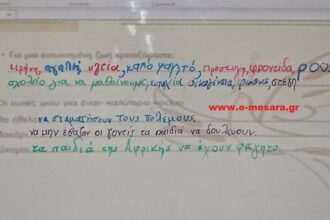 Για μια ευτυχισμένη ζωή χρειαζόμαστε:
ειρήνη, αγάπη, υγεία, καλό φαγητό, προσευχή, φροντίδα, ρού
σχολείο για να μαθαίνουμε, στέγη
Οι ευχές μου για έναν καλύτερο
www.e-mesara.gr
να σταματήσουν τους πολέμους,
να μην έβαζαν οι γονείς τα παιδιά να δουλεύουν.
τα παιδιά της Αφρικής να έχουν φαγητό.